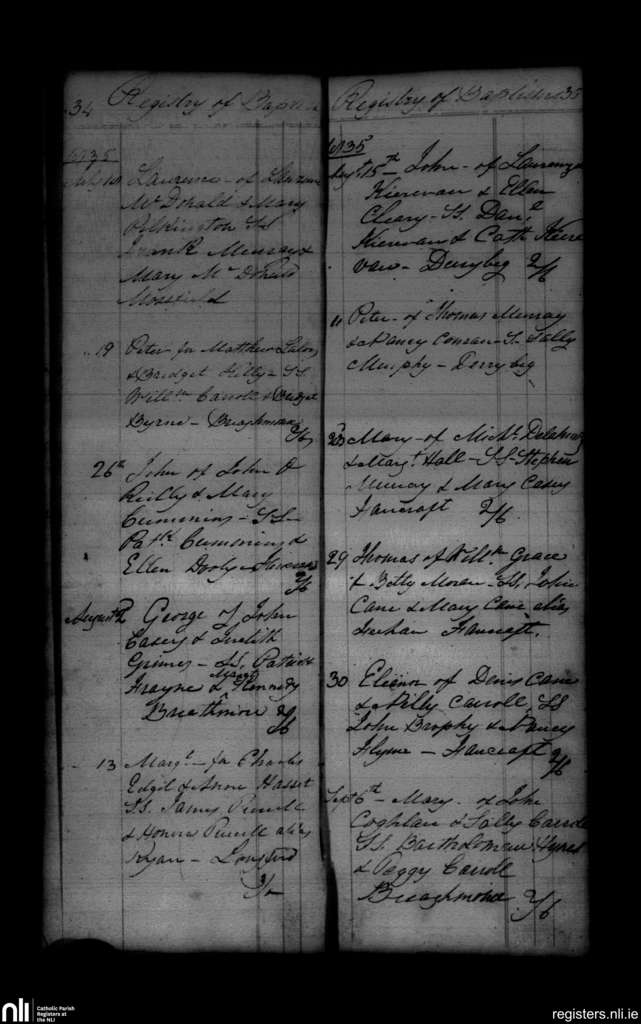 34 Registry of Baptis
1835
July
Laurence - of Laurence
McDonald & Mary
Pilkington SS
Frank Murray &
Mary McDonald
Mossfield
19 Peter for Matthew Lalor
& Bridget Kelly - SS
Willm Carroll & Bridget
Byrne - Breaghmore
2/6
26th John of John O
Reilly & Mary
Cummins - SS -
Patk Cummins &
Ellen Dooly -
2/6
August 2 George of John
Casey & Judith
Grimes - SS. Patrick
Frayne & Mary Kennedy
Breaghmore 2/6
13 Margt - for Charles
Edgil & Anne Hasset
SS. James Purcell
& Honora Purcell alias
Ryan - Longford
2/-
Registry of Baptisms 35
1835
Augt 15th John - of Laurence
Kierevan & Ellen
Cleary - SS. Danl
Kierevan & Cath Kiere
van - Derrybeg 2/6
Peter - of Thomas Murray
& Nancy - S. Sally
Murphy - Derrybeg
23 Mary - of Michl Delahunt
& Margt Hall - SS - Stephen
Murray & Mary Casey
Fancroft 2/6
29 Thomas of Willm Grace
& Betty Moran - SS. John
Cane & Mary Cane alias
Feehan Fancroft.
30 Elinor of Denis Cane
& Nelly Carroll. SS
John Brophy & Nancy
Flynn - Fancroft 2/6
Sept 6th - Mary - of John
Coghlan & Sally Carroll
SS Bartholomew Hynes
& Peggy Carroll
Breaghmore 2/6
nli
Catholic Parish
Registers at
the NLI
registers.nli.ie